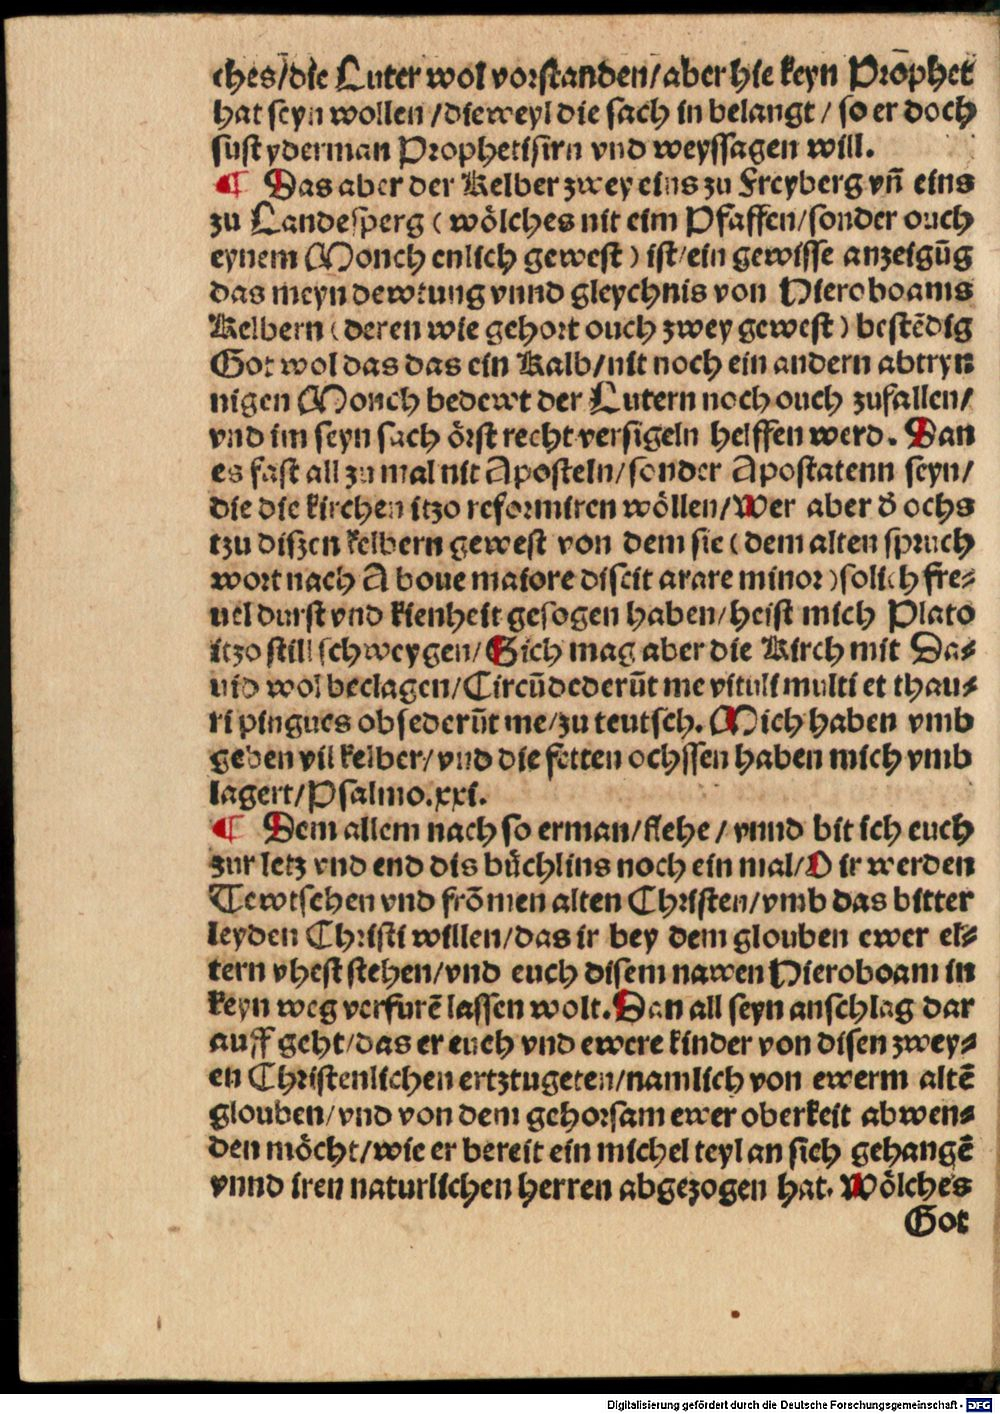 ches/die Luter wol vorstanden/aber hie keyn Prōphet
hat seyn wollen/dieweyl die sach in belangt/so er doch
sust yderman Prophetisirn vnd weyssagen will.
¶ Das aber der Kelber zwey eins zu Freyberg vn̄ eins
zu Landesperg (wölches nit eim Pfaffen/sonder ouch
eynem Monch enlich gewest) ist/ein gewisse anzeigūg
das meyn dewtung vnnd gleychnis von Hieroboams
Kelbern (deren wie gehort ouch zwey gewest) bestēdig
Got wol das das ein Kalb/nit noch ein andern abtryn
nigen Monch bedewt der Lutern noch ouch zufallen/
vnd im seyn sach örst recht versigeln helffen werd. Dan
es fast all zu mal nit Aposteln/sonder Apostatenn seyn/
die die kirchen itzo reformiren wöllen/Wer aber d̄ ochs
tzu diszen kelbern gewest von dem sie (dem alten spruch
wort nach A boue maiore discit arare minor) solich fre⸗
uel durst vnd kienheit gesogen haben/heist mich Plato
itzo still schweygen/Sich mag aber die Kirch mit Da⸗
uid wol beclagen/Circūdederūt me vituli multi et thau⸗
ri pingues obsederūt me/zu teutsch. Mich haben vmb
geben vil kelber/vnd die fetten ochssen haben mich vmb
lagert/Psalmo.xxi.
¶ Dem allem nach so erman/flehe/vnnd bit ich euch
zur letz vnd end dis büchlins noch ein mal/O ir werden
Tewtschen vnd frōmen alten Christen/vmb das bitter
leyden Christi willen/das ir bey dem glouben ewer el⸗
tern vhest stehen/vnd euch disem nawen Hieroboam in
keyn weg verfurē lassen wolt. Dan all seyn anschlag dar
auff geht/das er euch vnd ewere kinder von disen zwey⸗
en Christenlichen ertztugeten/namlich von ewerm altē
glouben/vnd von dem gehorsam ewer oberkeit abwen⸗
den möcht/wie er bereit ein michel teyl an sich gehangē
vnnd iren naturlichen herren abgezogen hat. Wölches
Got
Digitalisierung gefördert durch die Deutsche Forschungsgemeinschaft - DFG